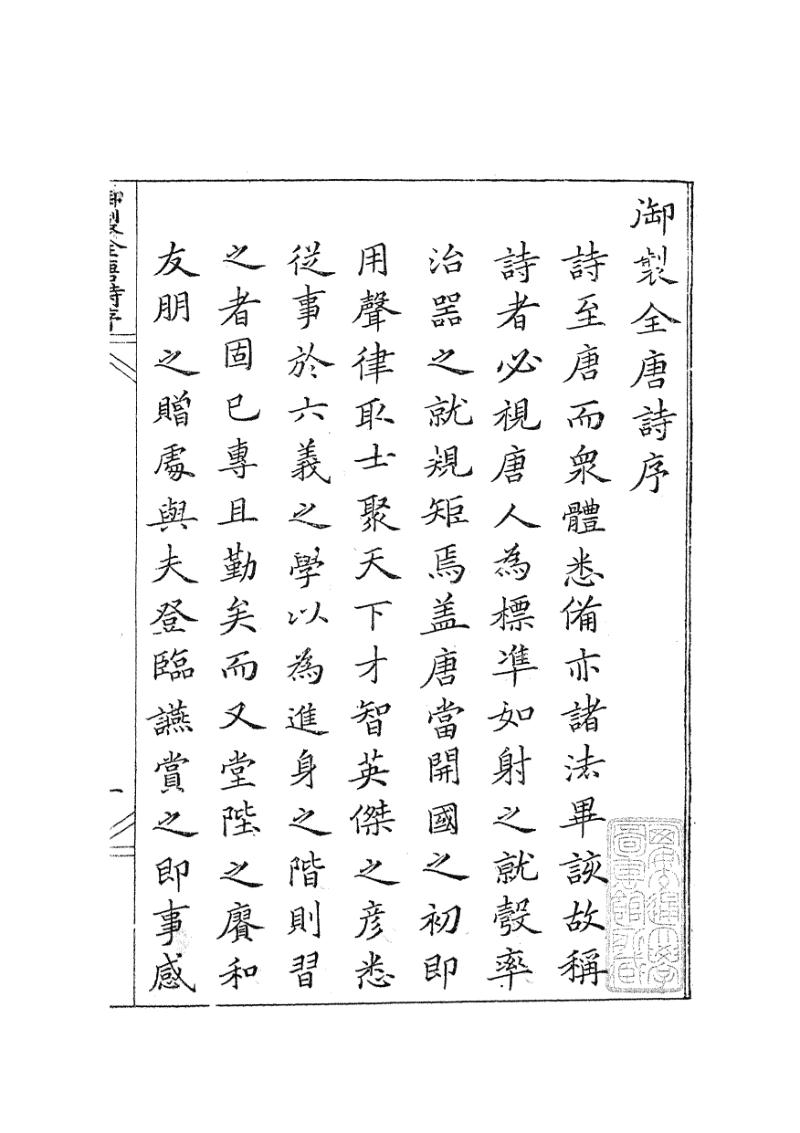 御製全唐詩序
詩至唐而衆體悉備亦諸法畢該故稱
詩者必視唐人為標準如射之就彀率
治器之就規矩焉盖唐當開國之初即
用聲律取士聚天下才智英傑之彦悉
從事於六義之學以為進身之階則習
之者固已專且勤矣而又堂陛之賡和
友朋之贈處與夫登臨讌賞之即事感
御製全唐詩序
一